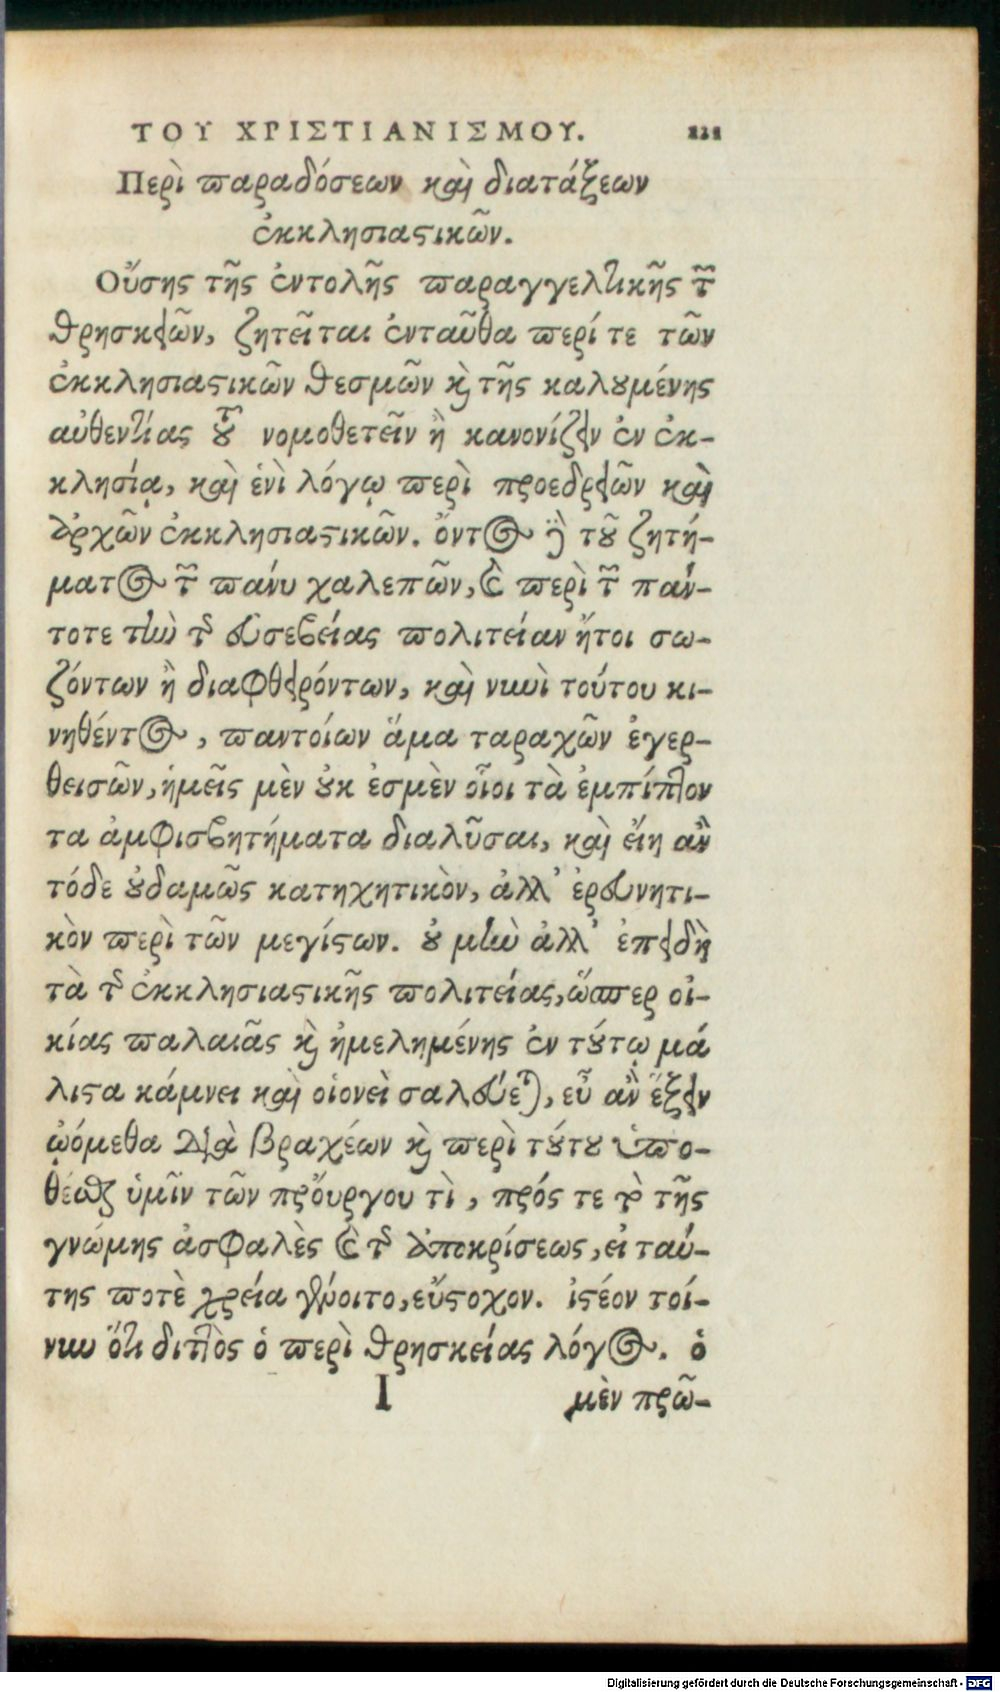 ΤΟΥ ΧΡΙΣΤΙΑΝΙΣΜΟΥ. 121
Περὶ παραδόσεων καὶ διατάξεων
ἐκκλησιαστικῶν.
Οὔσης τῆς ἐντολῆς παραγγελτικῆς τῶν
θρησκειῶν, ζητεῖται ἐνταῦθα περί τε τῶν
ἐκκλησιαστικῶν θεσμῶν καὶ τῆς καλουμένης
αὐθεντίας τοῦ νομοθετεῖν ἢ κανονίζειν ἐν ἐκ-
κλησίᾳ, καὶ ἑνὶ λόγῳ περὶ προεδρειῶν καὶ
ἀρχῶν ἐκκλησιαστικῶν. ὄντος δὲ τοῦ ζητή-
ματος τῶν πάνυ χαλεπῶν, καὶ περὶ τῶν πάν-
τοτε τὴν τῆς εὐσεβείας πολιτείαν ἤτοι σω-
ζόντων ἢ διαφθειρόντων, καὶ νυνὶ τούτου κι-
νηθέντος, παντοίων ἅμα ταραχῶν ἐγερ-
θεισῶν, ἡμεῖς μὲν οὐκ ἐσμὲν οἷοι τὰ ἐμπίπτον
τα ἀμφισβητήματα διαλῦσαι, καὶ εἴη ἂν
τόδε οὐδαμῶς κατηχητικὸν, ἀλλ' ἐρευνητι-
κὸν περὶ τῶν μεγίστων. οὐ μὴν ἀλλ' ἐπειδὴ
τὰ τῆς ἐκκλησιαστικῆς πολιτείας, ὥσπερ οἰ-
κίας παλαιᾶς καὶ ἠμελημένης ἐν τούτῳ μά
λιστα κάμνει καὶ οἱονεὶ σαλεύεται, εὖ ἂν ἕξειν
ᾠόμεθα διὰ βραχέων καὶ περὶ τούτου ὑπο-
θέσθαι ὑμῖν τῶν προὔργου τὶ, πρός τε τὸ τῆς
γνώμης ἀσφαλὲς καὶ τῆς ἀποκρίσεως, εἰ ταύ-
της ποτὲ χρεία γένοιτο, εὔστοχον. ἰστέον τοί-
νυν ὅτι διττὸς ὁ περὶ θρησκείας λόγος. ὁ
I μὲν πρῶ-
Digitalisierung gefördert durch die Deutsche Forschungsgemeinschaft - DFG